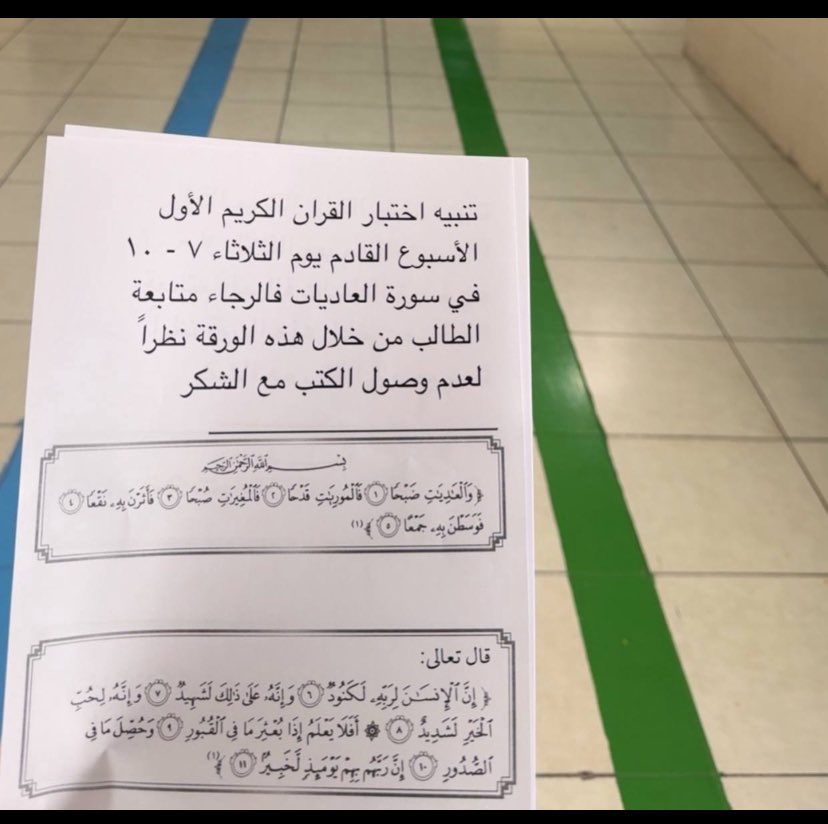 تنبيه اختبار القران الكريم الأول
الأسبوع القادم يوم الثلاثاء ٧ - ١٠
في سورة العاديات فالرجاء متابعة
الطالب من خلال هذه الورقة نظراً
لعدم وصول الكتب مع الشكر
بِسْمِ اللَّهِ الرَّحْمَٰنِ الرَّحِيمِ
﴿ وَٱلْعَٰدِيَٰتِ ضَبْحًا ١ فَٱلْمُورِيَٰتِ قَدْحًا ٢ فَٱلْمُغِيرَٰتِ صُبْحًا ٣ فَأَثَرْنَ بِهِۦ نَقْعًا ٤
فَوَسَطْنَ بِهِۦ جَمْعًا ٥ ﴾ (١)
قال تعالى:
﴿ إِنَّ ٱلْإِنسَٰنَ لِرَبِّهِۦ لَكَنُودٌ ٦ وَإِنَّهُۥ عَلَىٰ ذَٰلِكَ لَشَهِيدٌ ٧ وَإِنَّهُۥ لِحُبِّ
ٱلْخَيْرِ لَشَدِيدٌ ٨ ۞ أَفَلَا يَعْلَمُ إِذَا بُعْثِرَ مَا فِى ٱلْقُبُورِ ٩ وَحُصِّلَ مَا فِى
ٱلصُّدُورِ ١٠ إِنَّ رَبَّهُم بِهِمْ يَوْمَئِذٍ لَّخَبِيرٌۢ ١١ ﴾ (١)